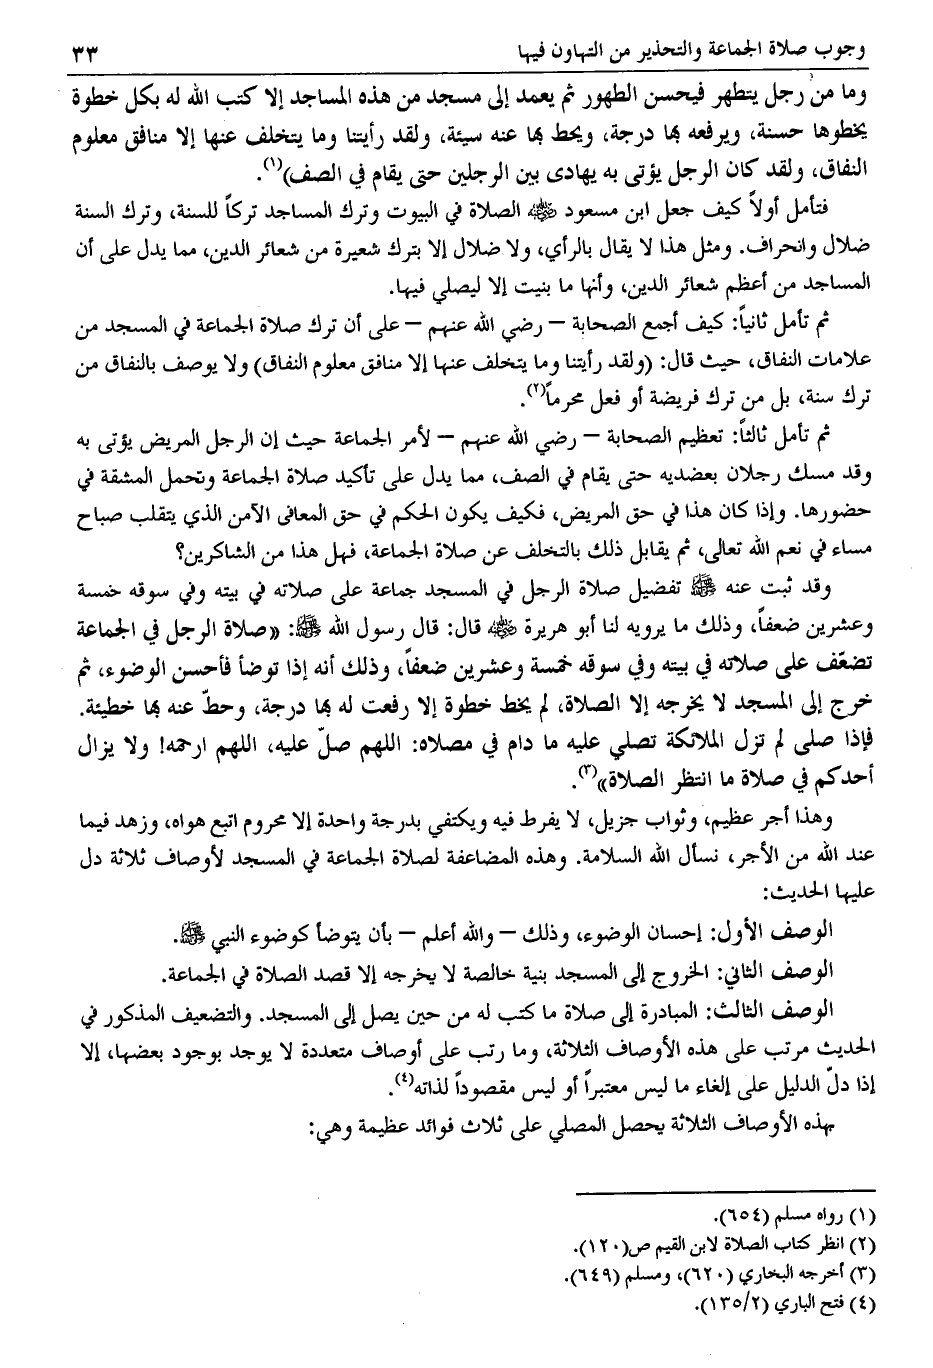 وجوب صلاة الجماعة والتحذير من التهاون فيها ٣٣
وما من رجل يتطهر فيحسن الطهور ثم يعمد إلى مسجد من هذه المساجد إلا كتب الله له بكل خطوة
يخطوها حسنة، ويرفعه بها درجة، ويحط بها عنه سيئة، ولقد رأيتنا وما يتخلف عنها إلا منافق معلوم
النفاق، ولقد كان الرجل يؤتى به يهادى بين الرجلين حتى يقام في الصف)(١).
فتأمل أولاً كيف جعل ابن مسعود رضي الله عنه الصلاة في البيوت وترك المساجد تركاً للسنة، وترك السنة
ضلال وانحراف. ومثل هذا لا يقال بالرأي، ولا ضلال إلا بترك شعيرة من شعائر الدين، مما يدل على أن
المساجد من أعظم شعائر الدين، وأنها ما بنيت إلا ليصلي فيها.
ثم تأمل ثانياً: كيف أجمع الصحابة – رضي الله عنهم – على أن ترك صلاة الجماعة في المسجد من
علامات النفاق، حيث قال: (ولقد رأيتنا وما يتخلف عنها إلا منافق معلوم النفاق) ولا يوصف بالنفاق من
ترك سنة، بل من ترك فريضة أو فعل محرماً(٢).
ثم تأمل ثالثاً: تعظيم الصحابة – رضي الله عنهم – لأمر الجماعة حيث إن الرجل المريض يؤتى به
وقد مسك رجلان بعضديه حتى يقام في الصف، مما يدل على تأكيد صلاة الجماعة وتحمل المشقة في
حضورها. وإذا كان هذا في حق المريض، فكيف يكون الحكم في حق المعافى الآمن الذي يتقلب صباح
مساء في نعم الله تعالى، ثم يقابل ذلك بالتخلف عن صلاة الجماعة، فهل هذا من الشاكرين؟
وقد ثبت عنه ﷺ تفضيل صلاة الرجل في المسجد جماعة على صلاته في بيته وفي سوقه خمسة
وعشرين ضعفاً، وذلك ما يرويه لنا أبو هريرة رضي الله عنه قال: قال رسول الله ﷺ: «صلاة الرجل في الجماعة
تضعّف على صلاته في بيته وفي سوقه خمسة وعشرين ضعفاً، وذلك أنه إذا توضأ فأحسن الوضوء، ثم
خرج إلى المسجد لا يخرجه إلا الصلاة، لم يخط خطوة إلا رفعت له بها درجة، وحطّ عنه بها خطيئة.
فإذا صلى لم تزل الملائكة تصلي عليه ما دام في مصلاه: اللهم صلّ عليه، اللهم ارحمه! ولا يزال
أحدكم في صلاة ما انتظر الصلاة»(٣).
وهذا أجر عظيم، وثواب جزيل، لا يفرط فيه ويكتفي بدرجة واحدة إلا محروم اتبع هواه، وزهد فيما
عند الله من الأجر، نسأل الله السلامة. وهذه المضاعفة لصلاة الجماعة في المسجد لأوصاف ثلاثة دل
عليها الحديث:
الوصف الأول: إحسان الوضوء، وذلك – والله أعلم – بأن يتوضأ كوضوء النبي ﷺ.
الوصف الثاني: الخروج إلى المسجد بنية خالصة لا يخرجه إلا قصد الصلاة في الجماعة.
الوصف الثالث: المبادرة إلى صلاة ما كتب له من حين يصل إلى المسجد. والتضعيف المذكور في
الحديث مرتب على هذه الأوصاف الثلاثة، وما رتب على أوصاف متعددة لا يوجد بوجود بعضها، إلا
إذا دلّ الدليل على إلغاء ما ليس معتبراً أو ليس مقصوداً لذاته(٤).
بهذه الأوصاف الثلاثة يحصل المصلي على ثلاث فوائد عظيمة وهي:
(١) رواه مسلم (٦٥٤).
(٢) انظر كتاب الصلاة لابن القيم ص(١٢٠).
(٣) أخرجه البخاري (٦٢٠)، ومسلم (٦٤٩).
(٤) فتح الباري (١٣٥/٢).